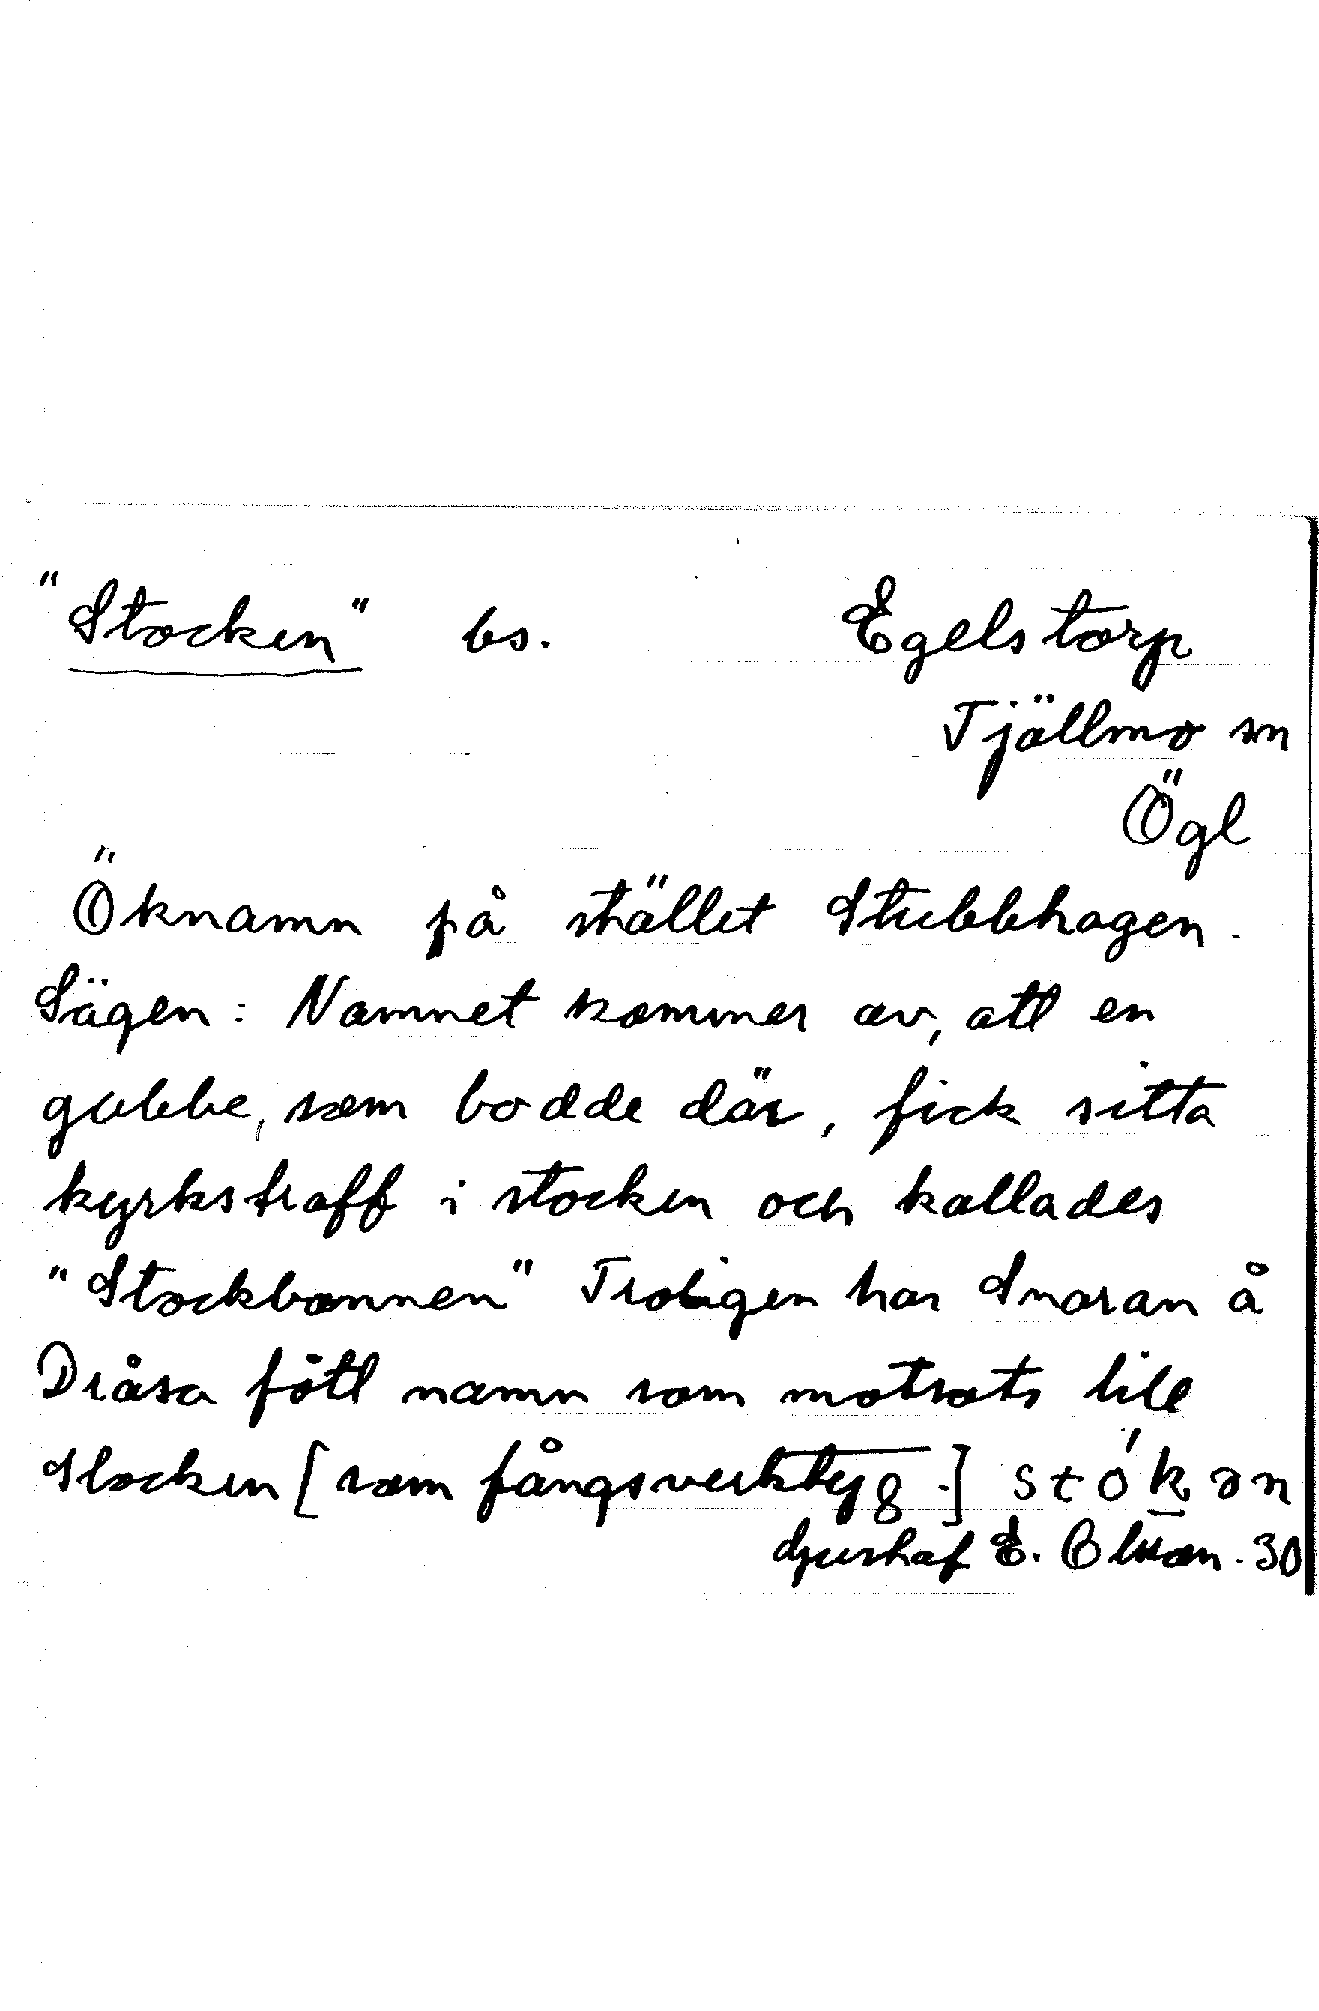 "Stocken" bs. Egelstorp
Tjällmo sn
Ögl
Öknamn på stället Stubbhagen.
Sägen: Namnet kommer av, att en
gubbe, som bodde där, fick sitta
kyrkstraff i stocken och kallades
"Stockbonnen" Troligen har Snaran å
Dråsa fått namn som motsats till
stocken [som fångsverktyg.] stókən
E. 30